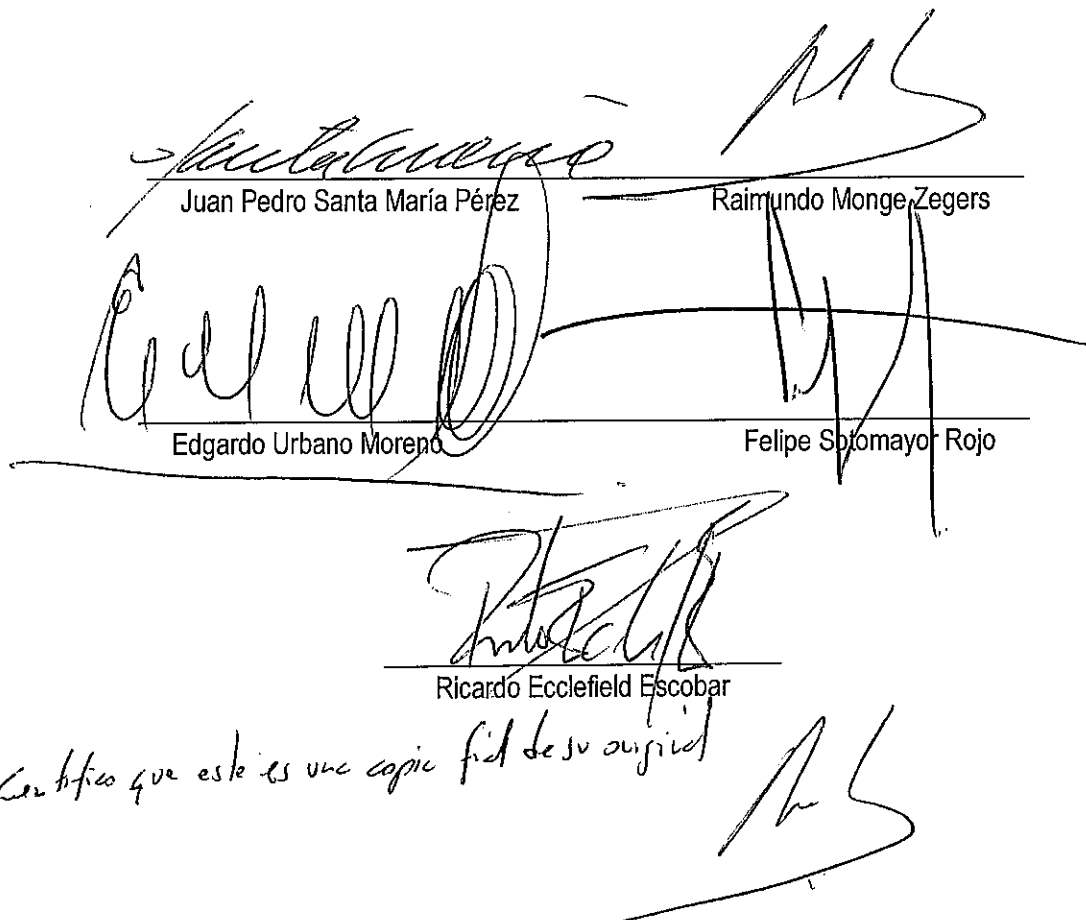 Juan Pedro Santa María Pérez
Raimundo Monge Zegers
Edgardo Urbano Moreno
Felipe Sotomayor Rojo
Ricardo Ecclefield Escobar
Certifico que este es una copia fiel de su original